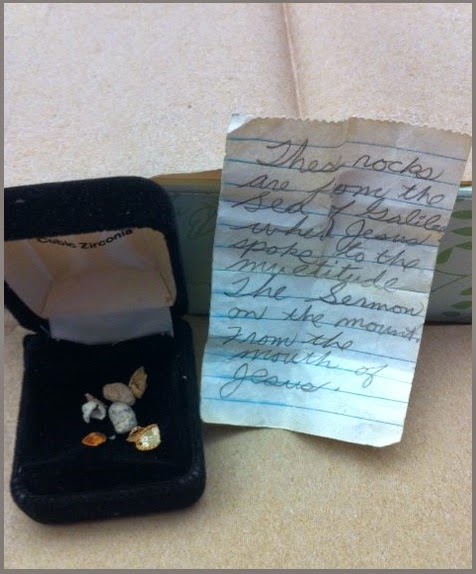 Cubic Zirconia
Thes rocks
are from the
Sea of Galilee
when Jesus
spoke to the
multitude
The Sermon
on the mount.
From the
mouth of
Jesus.